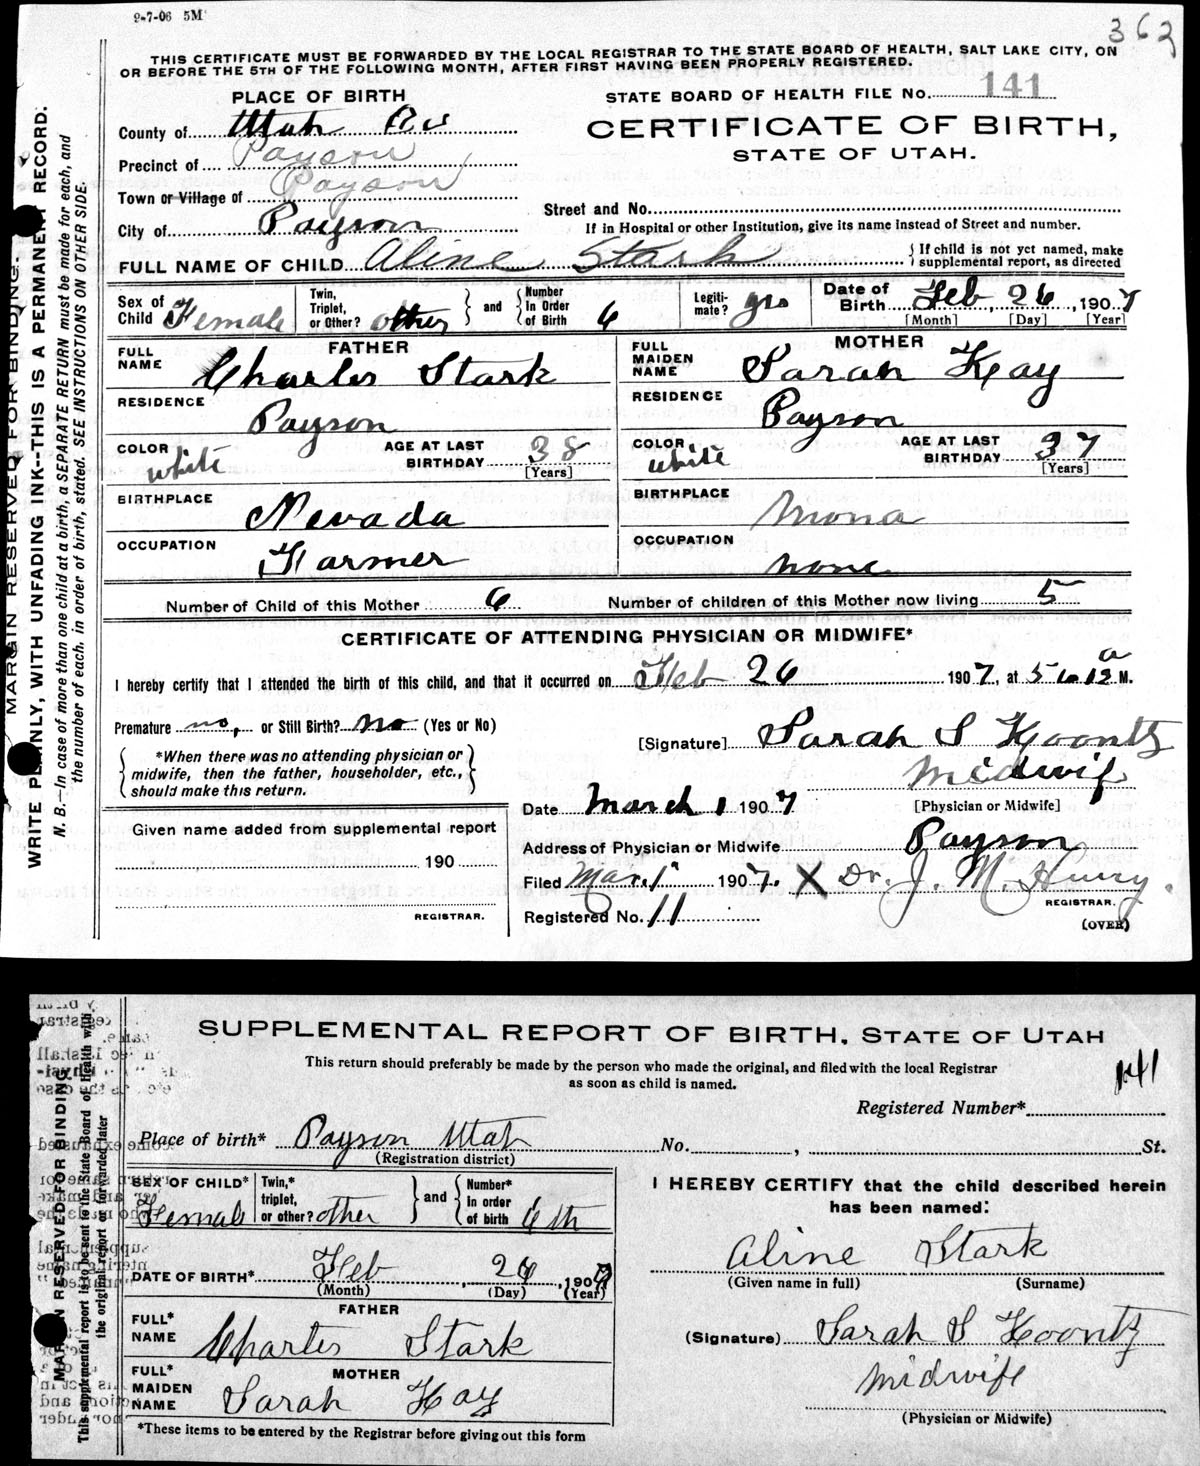 9-7-06 5M
362
THIS CERTIFICATE MUST BE FORWARDED BY THE LOCAL REGISTRAR TO THE STATE BOARD OF HEALTH, SALT LAKE CITY, ON
OR BEFORE THE 5TH OF THE FOLLOWING MONTH, AFTER FIRST HAVING BEEN PROPERLY REGISTERED.
MARGIN RESERVED FOR BINDING.
WRITE PLAINLY, WITH UNFADING INK--THIS IS A PERMANENT RECORD.
N. B.--In case of more than one child at a birth, a SEPARATE RETURN must be made for each, and
the number of each, in order of birth, stated. SEE INSTRUCTIONS ON OTHER SIDE.
PLACE OF BIRTH
STATE BOARD OF HEALTH FILE No. 141
County of Utah Co
CERTIFICATE OF BIRTH,
STATE OF UTAH.
Precinct of Payson
Town or Village of Payson
Street and No.
City of Payson
If in Hospital or other Institution, give its name instead of Street and number.
FULL NAME OF CHILD Aline Stark
If child is not yet named, make
supplemental report, as directed
Sex of Child Female
Twin, Triplet, or Other? other
and
Number In Order of Birth 6
Legitimate? yes
Date of Birth Feb 26, 1907
[Month] [Day] [Year]
FATHER
FULL NAME Charles Stark
RESIDENCE Payson
COLOR white
AGE AT LAST BIRTHDAY 38
[Years]
BIRTHPLACE Nevada
OCCUPATION Farmer
MOTHER
FULL MAIDEN NAME Sarah Kay
RESIDENCE Payson
COLOR white
AGE AT LAST BIRTHDAY 37
[Years]
BIRTHPLACE Mona
OCCUPATION none
Number of Child of this Mother 6
Number of children of this Mother now living 5
CERTIFICATE OF ATTENDING PHYSICIAN OR MIDWIFE*
I hereby certify that I attended the birth of this child, and that it occurred on Feb 26 1907, at 5 a M.
Premature no, or Still Birth? No (Yes or No)
*When there was no attending physician or
midwife, then the father, householder, etc.,
should make this return.
[Signature] Sarah S Koontz
Midwife
[Physician or Midwife]
Date March 1 1907
Address of Physician or Midwife Payson
Given name added from supplemental report
190
REGISTRAR.
Filed Mar. 1 1907. X Dr. J. M.
REGISTRAR.
Registered No. 11
(OVER)
SUPPLEMENTAL REPORT OF BIRTH, STATE OF UTAH
This return should preferably be made by the person who made the original, and filed with the local Registrar
as soon as child is named.
MARGIN RESERVED FOR BINDING
This supplemental report is to be sent to the State Board of Health with
the original report or forwarded later
141
Registered Number*
Place of birth* Payson Utah No. , St.
(Registration district)
SEX OF CHILD* Female
Twin,* triplet, or other? other
and
Number* in order of birth 6th
DATE OF BIRTH* Feb 26, 1907
(Month) (Day) (Year)
FATHER
FULL* NAME Charles Stark
MOTHER
FULL* MAIDEN NAME Sarah Kay
*These items to be entered by the Registrar before giving out this form
I HEREBY CERTIFY that the child described herein
has been named:
Aline Stark
(Given name in full) (Surname)
(Signature) Sarah S Koontz
Midwife
(Physician or Midwife)